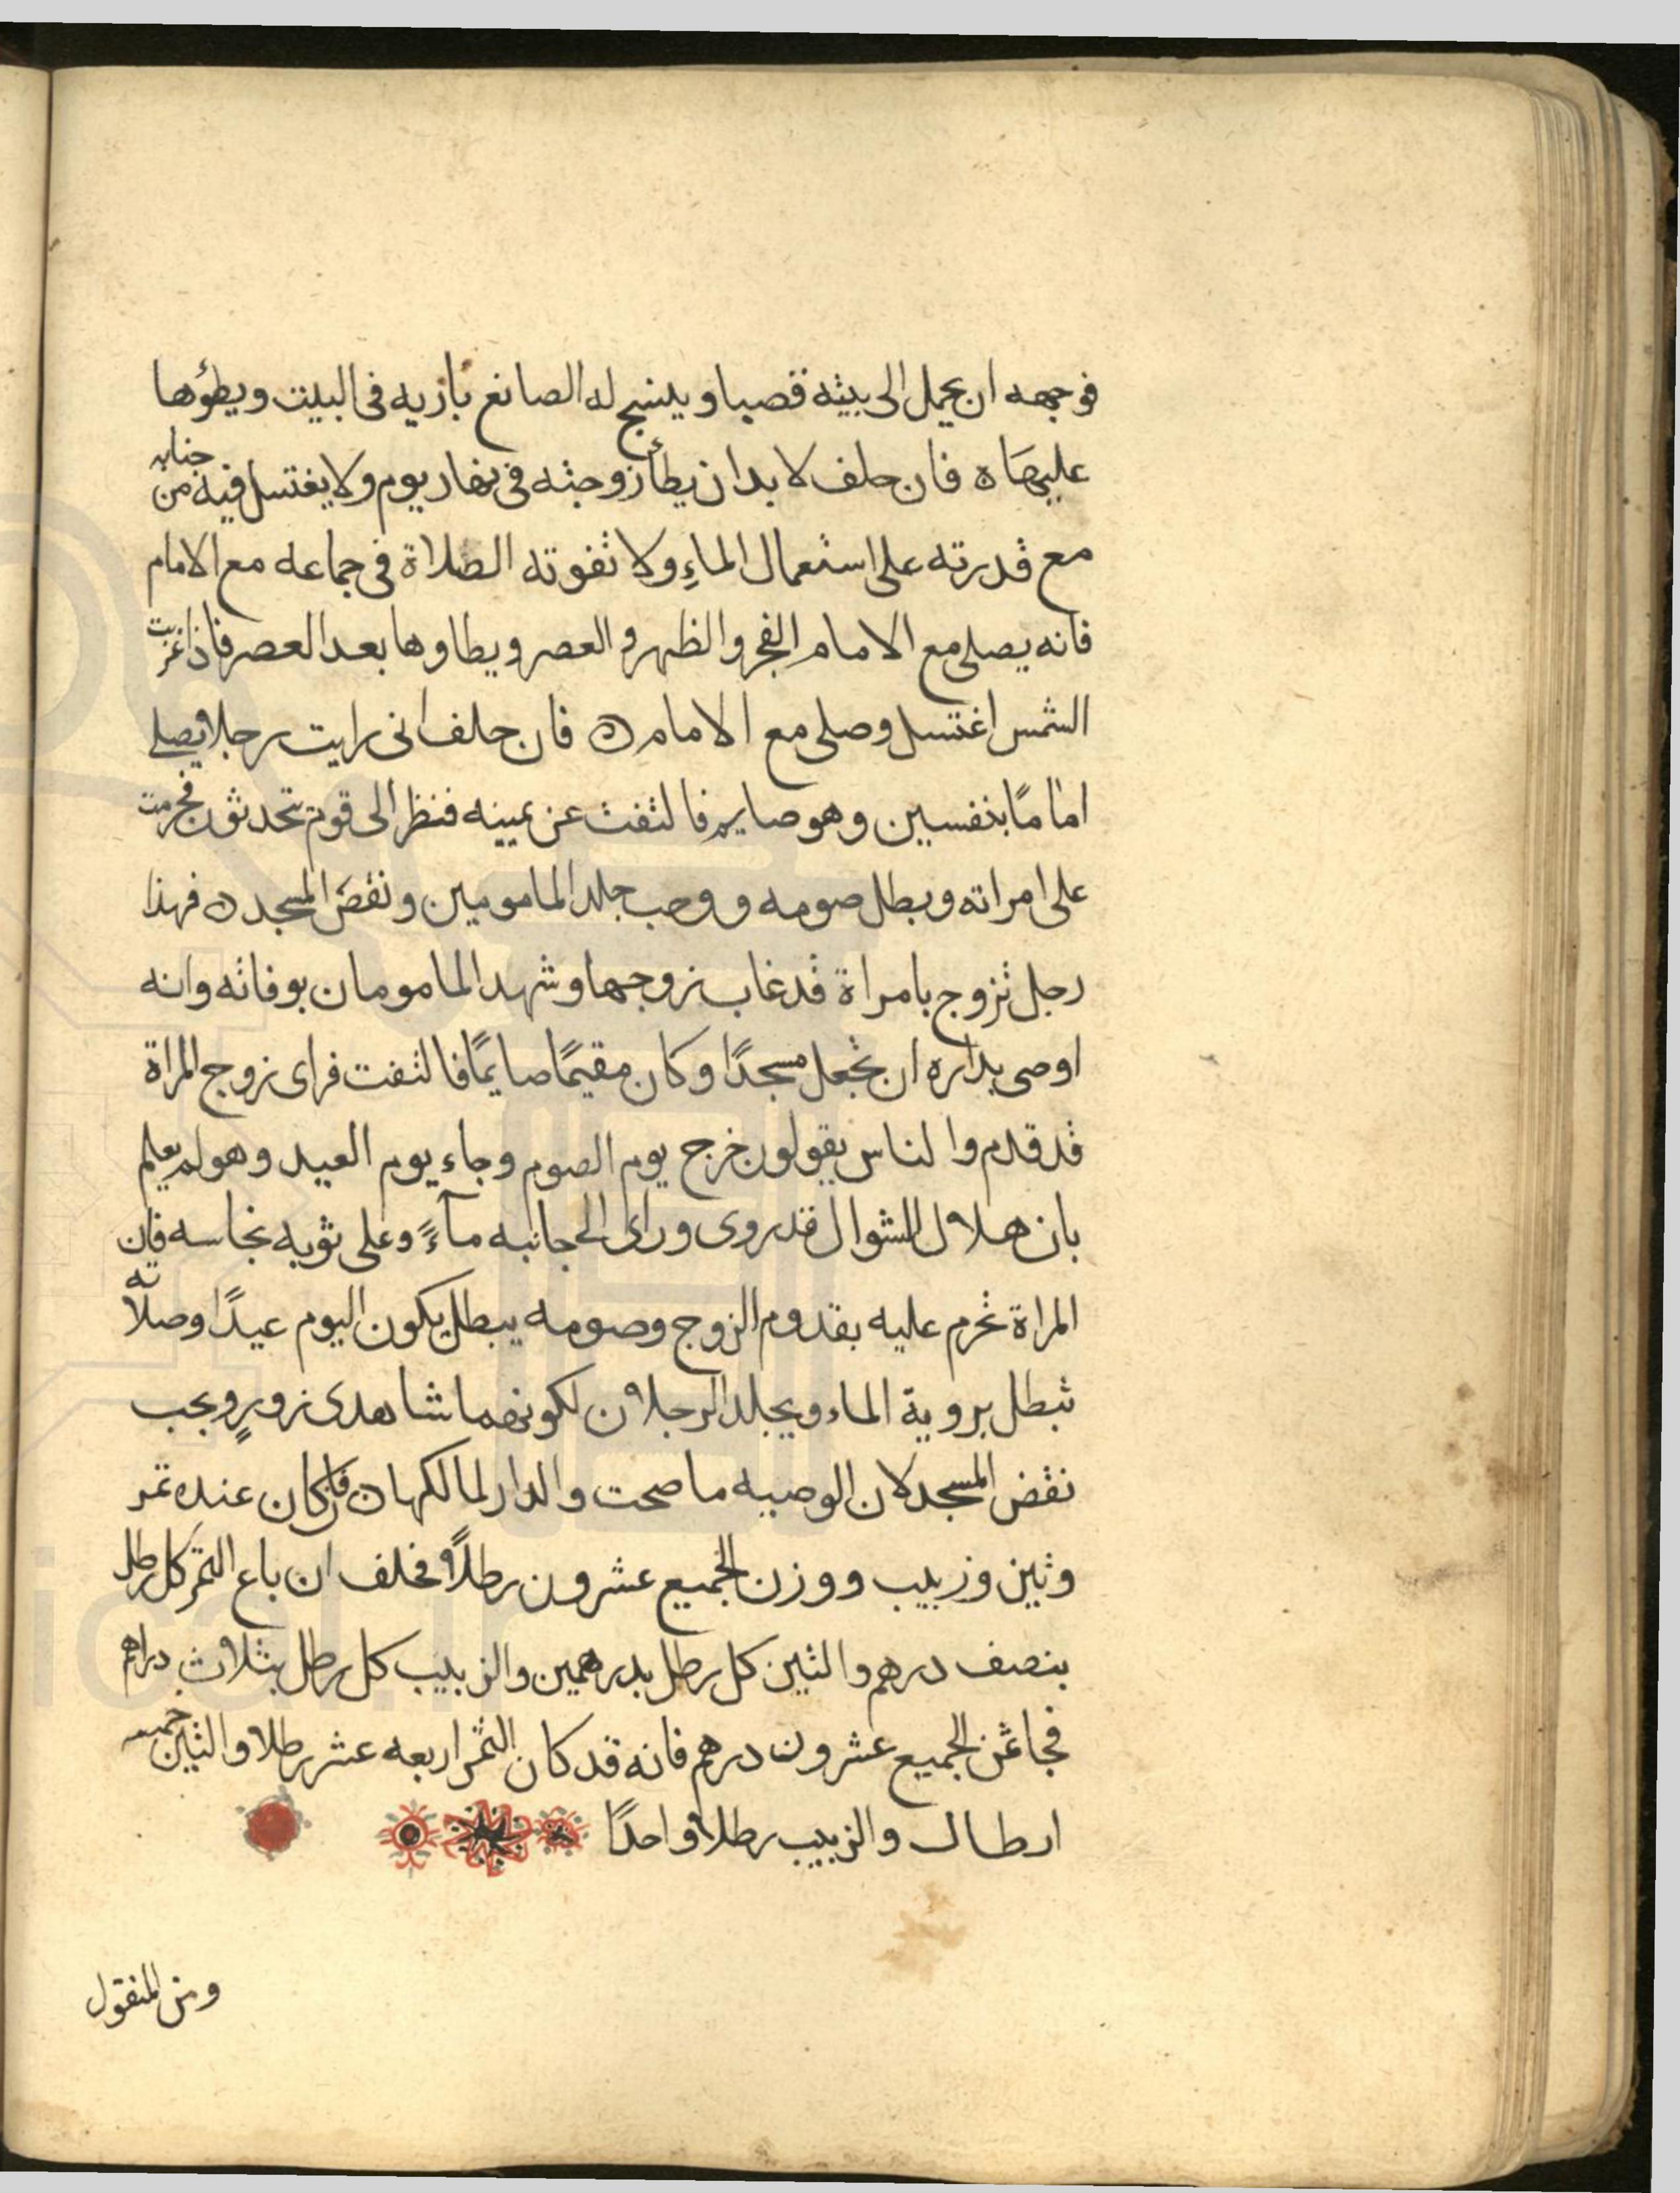 فوجهه ان يحمل الى بيته قصبا وينسج له الصانع باريه فى البيت ويطؤها
عليها ه فان حلف لا بد ان يطأ زوجته فى نهار يوم ولا يغتسل فيه من جنابه
مع قدرته على استعمال الماءِ ولا تفوته الصلاة فى جماعه مع الامام
فانه يصلى مع الامام الفجر والظهر والعصر ويطاوها بعد العصر فاذا غربت
الشمس اغتسل وصلى مع الامام ه فان حلف انى رايت رجلا يصلى
امامًا بنفسين وهو صايم فالتفت عن يمينه فنظر الى قوم يتحدثون فحرمت
على امراته وبطل صومه ووجب جلد المامومين ونقض المسجد ه فهذا
رجل تزوج بامراة قد غاب زوجها وشهد المامومان بوفاته وانه
اوصى بداره ان تجعل مسجدًا وكان مقيمًا صايمًا فالتفت فراى زوج المراة
قد قدم والناس يقولون خرج يوم الصوم وجاء يوم العيد وهو لم يعلم
بان هلال الشوال قد روى وراى الى جانبه ماءً وعلى ثوبه نجاسه فان
المراة تحرم عليه بقدوم الزوج وصومه يبطل يكون اليوم عيدًا وصلاته
تبطل بروية الماء ويجلد الرجلان لكونهما شاهدى زورٍ ويجب
نقض المسجد لان الوصيه ما صحت والدار لمالكها ه فان كان عنده تمر
وتين وزبيب ووزن الجميع عشرون رطلاً فحلف ان باع التمر كل رطل
بنصف درهم والتين كل رطل بدرهمين والزبيب كل رطل بثلاث دراهم
فجا ثمن الجميع عشرون درهم فانه قد كان التمر اربعه عشر رطلا والتين خمسه
ارطال والزبيب رطلا واحدًا
ومن المنقول